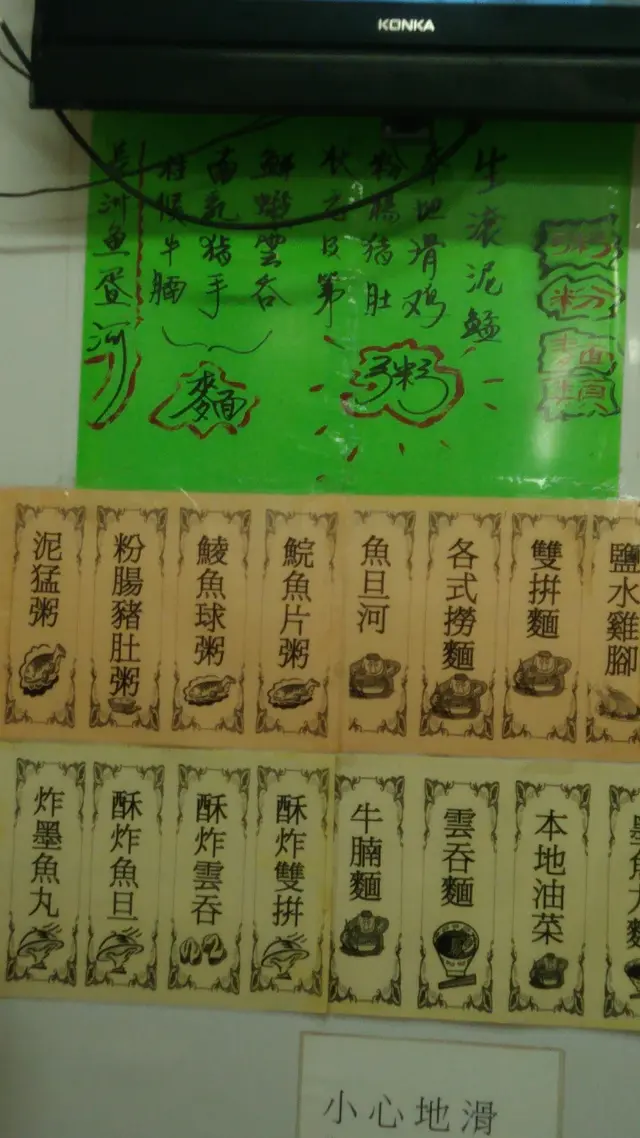 KONKA
粥
粉
麵
類
生滾泥鯭
本地滑鸡
粉腸猪肚
状元及第
粥
鮮蝦雲吞
南乳猪手
柱候牛腩
麵
長洲魚蛋河
泥猛粥
粉腸豬肚粥
鯪魚球粥
鯇魚片粥
魚旦河
各式撈麵
雙拼麵
鹽水雞腳
炸墨魚丸
酥炸魚旦
酥炸雲吞
酥炸雙拼
牛腩麵
雲吞麵
本地油菜
墨魚丸麵
小心地滑